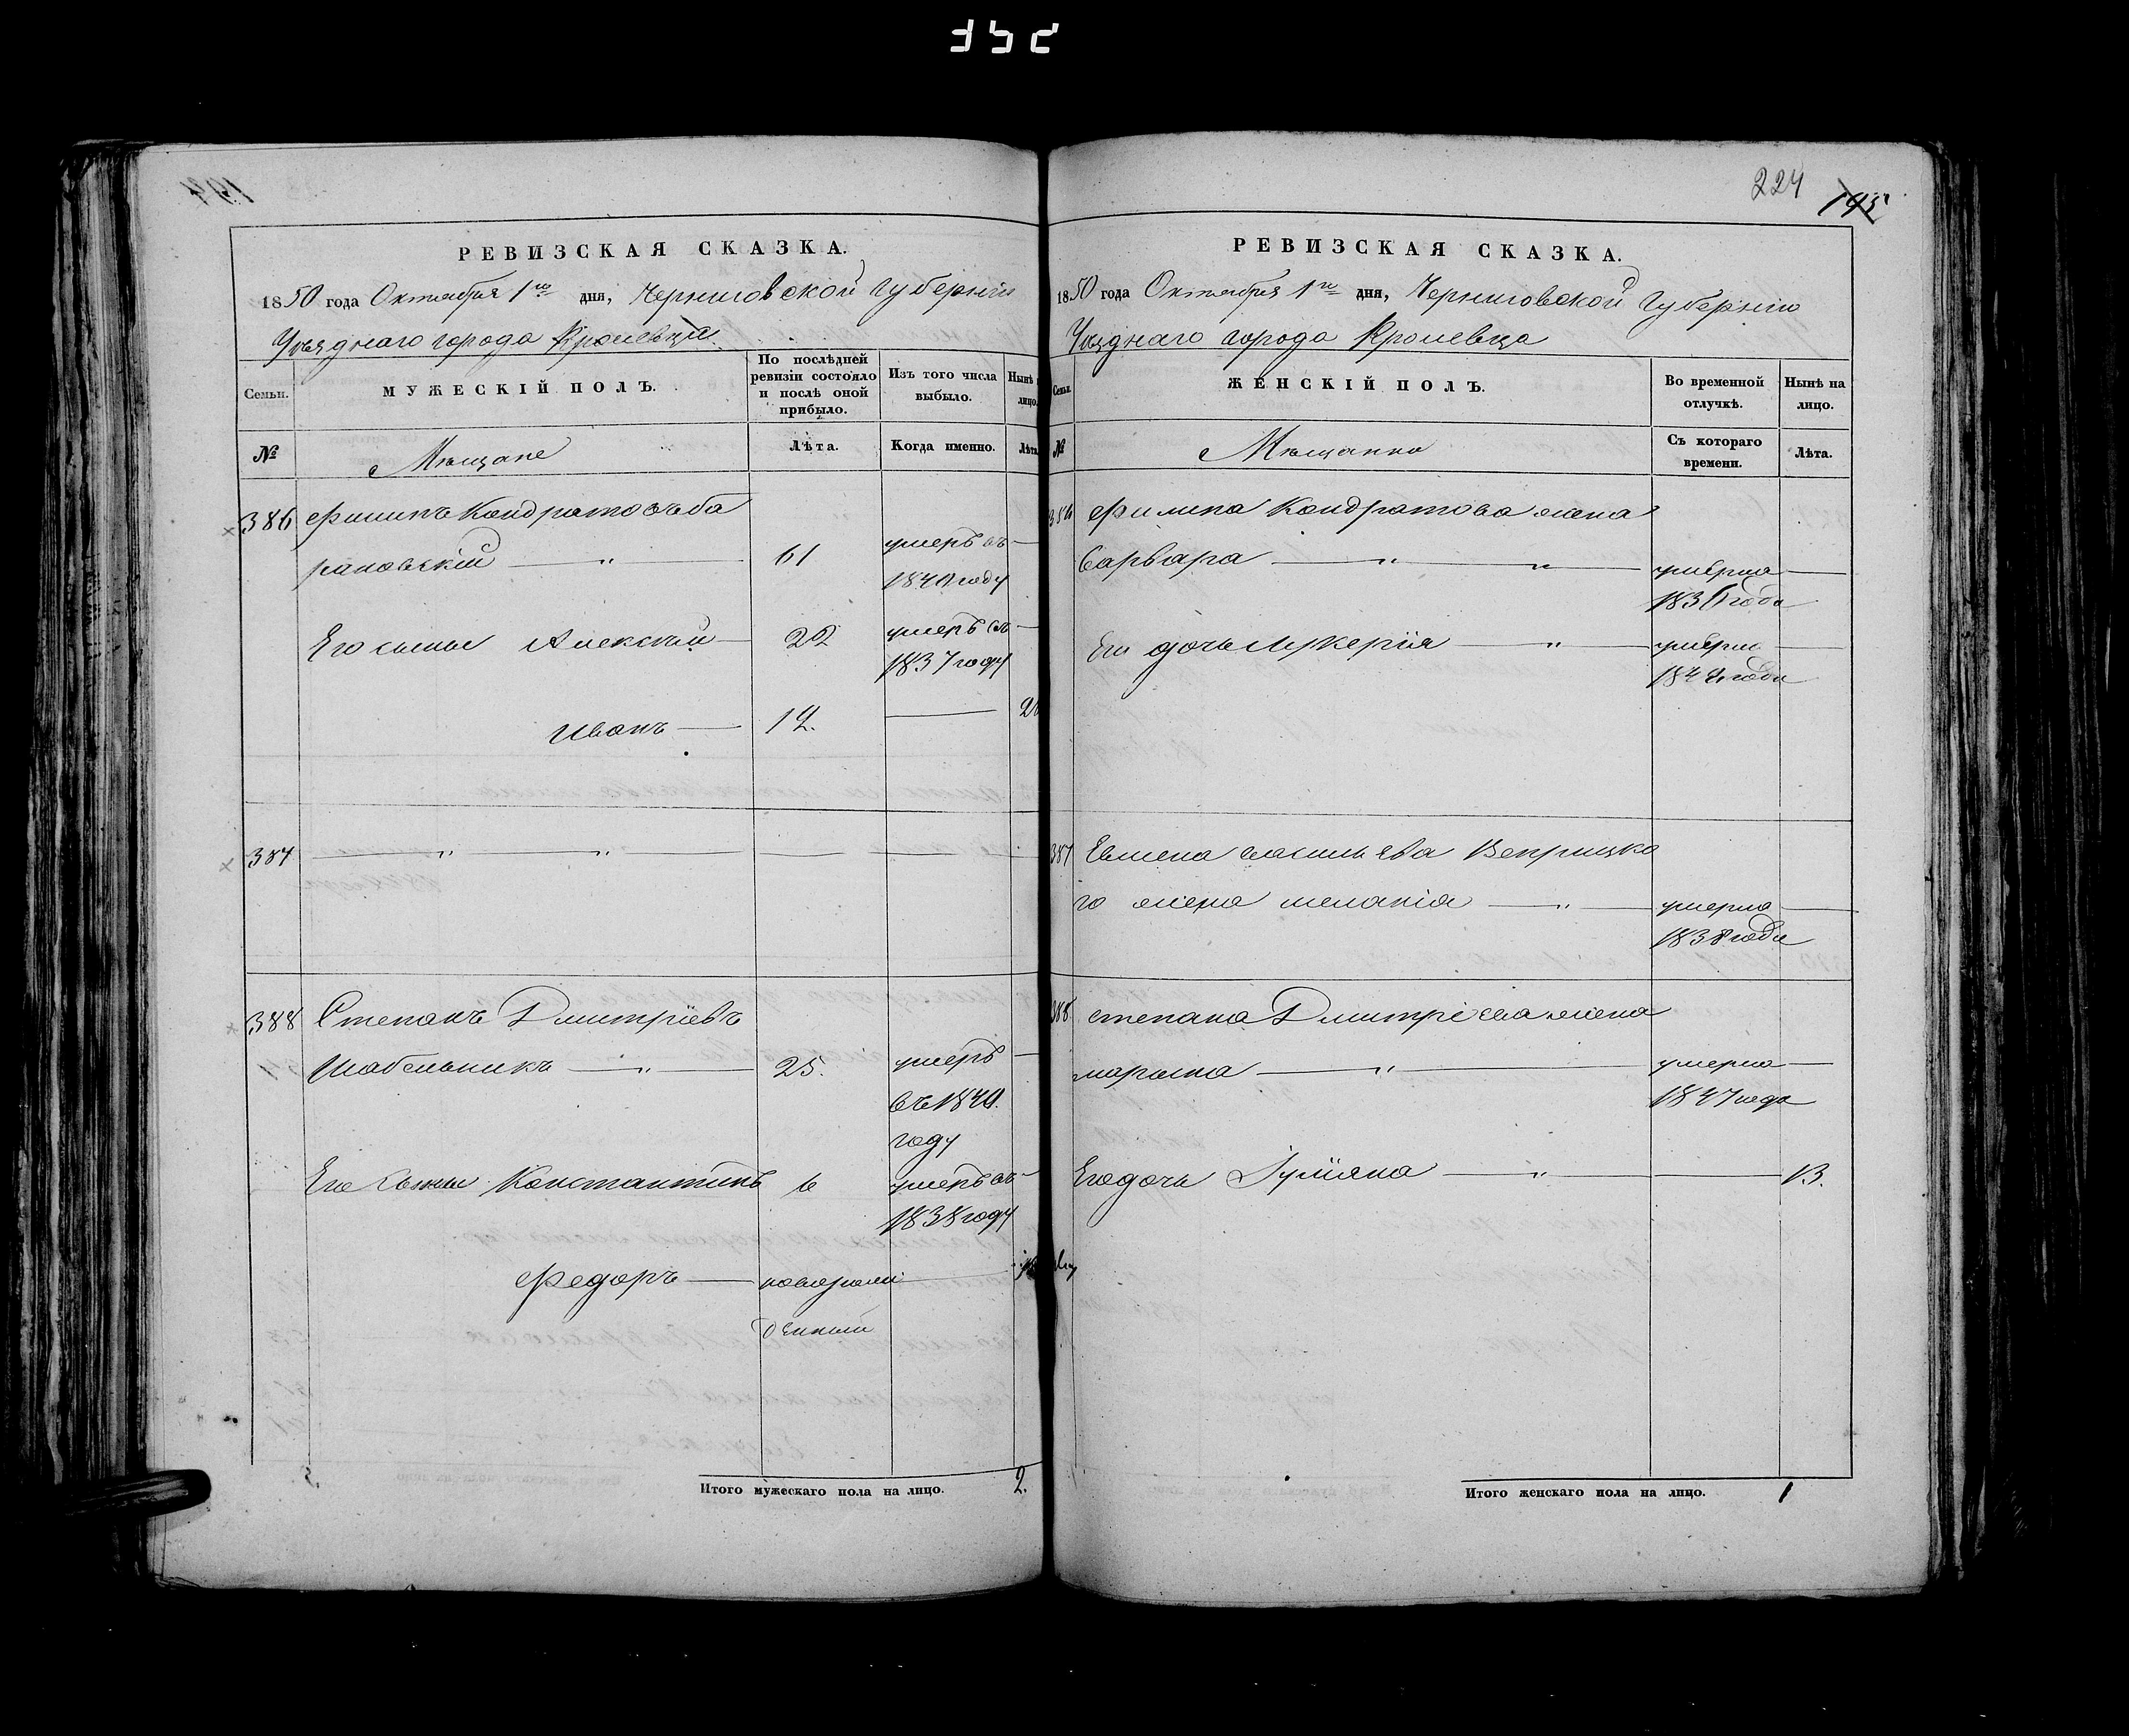 224
195
РЕВИЗСКАЯ СКАЗКА.
1850 года Октября 1го дня, Черниговской Губерніи
Уѣзднаго города Кролевца
Семьи.
МУЖЕСКІЙ ПОЛЪ.
По послѣдней ревизіи состояло и послѣ оной прибыло.
Изъ того числа выбыло.
Нынѣ
лицо.
№
Мѣщане
Лѣта.
Когда именно.
Лѣта
386 Филипъ Кондратовъ Ба
рановскій — „ — 61 умеръ въ —
1840 году
Его сыны Алексѣй — 22 умеръ въ —
1837 году
Иванъ — 12. —
387 — „ „ —
388 Степанъ Дмитріевъ
Шабельникъ — „ — 25. умеръ —
въ 1849.
году
Его сыны Константинъ 6 умеръ въ —
1838 году
Федоръ — новорож
денный
Итого мужескаго пола на лицо. 2.
РЕВИЗСКАЯ СКАЗКА.
1850 года Октября 1го дня, Черниговской Губерніи
Уѣзднаго города Кролевца
Семьи.
ЖЕНСКІЙ ПОЛЪ.
Во временной отлучкѣ.
Нынѣ на лицо.
№
Мѣщанки
Съ котораго времени.
Лѣта.
386 Филипа Кондратова жена
Варвара — „ „ — умерла —
1836 года
Его дочь Лукерія — „ — умерла —
года
387 Васильева Веприцка
го жена Меланія — „ — умерла —
1838 года
388 Степана Дмитріева жена
Марьяна — „ — умерла —
1847 года
Его дочь Іуліяна — „ — 13.
Итого женскаго пола на лицо. 1